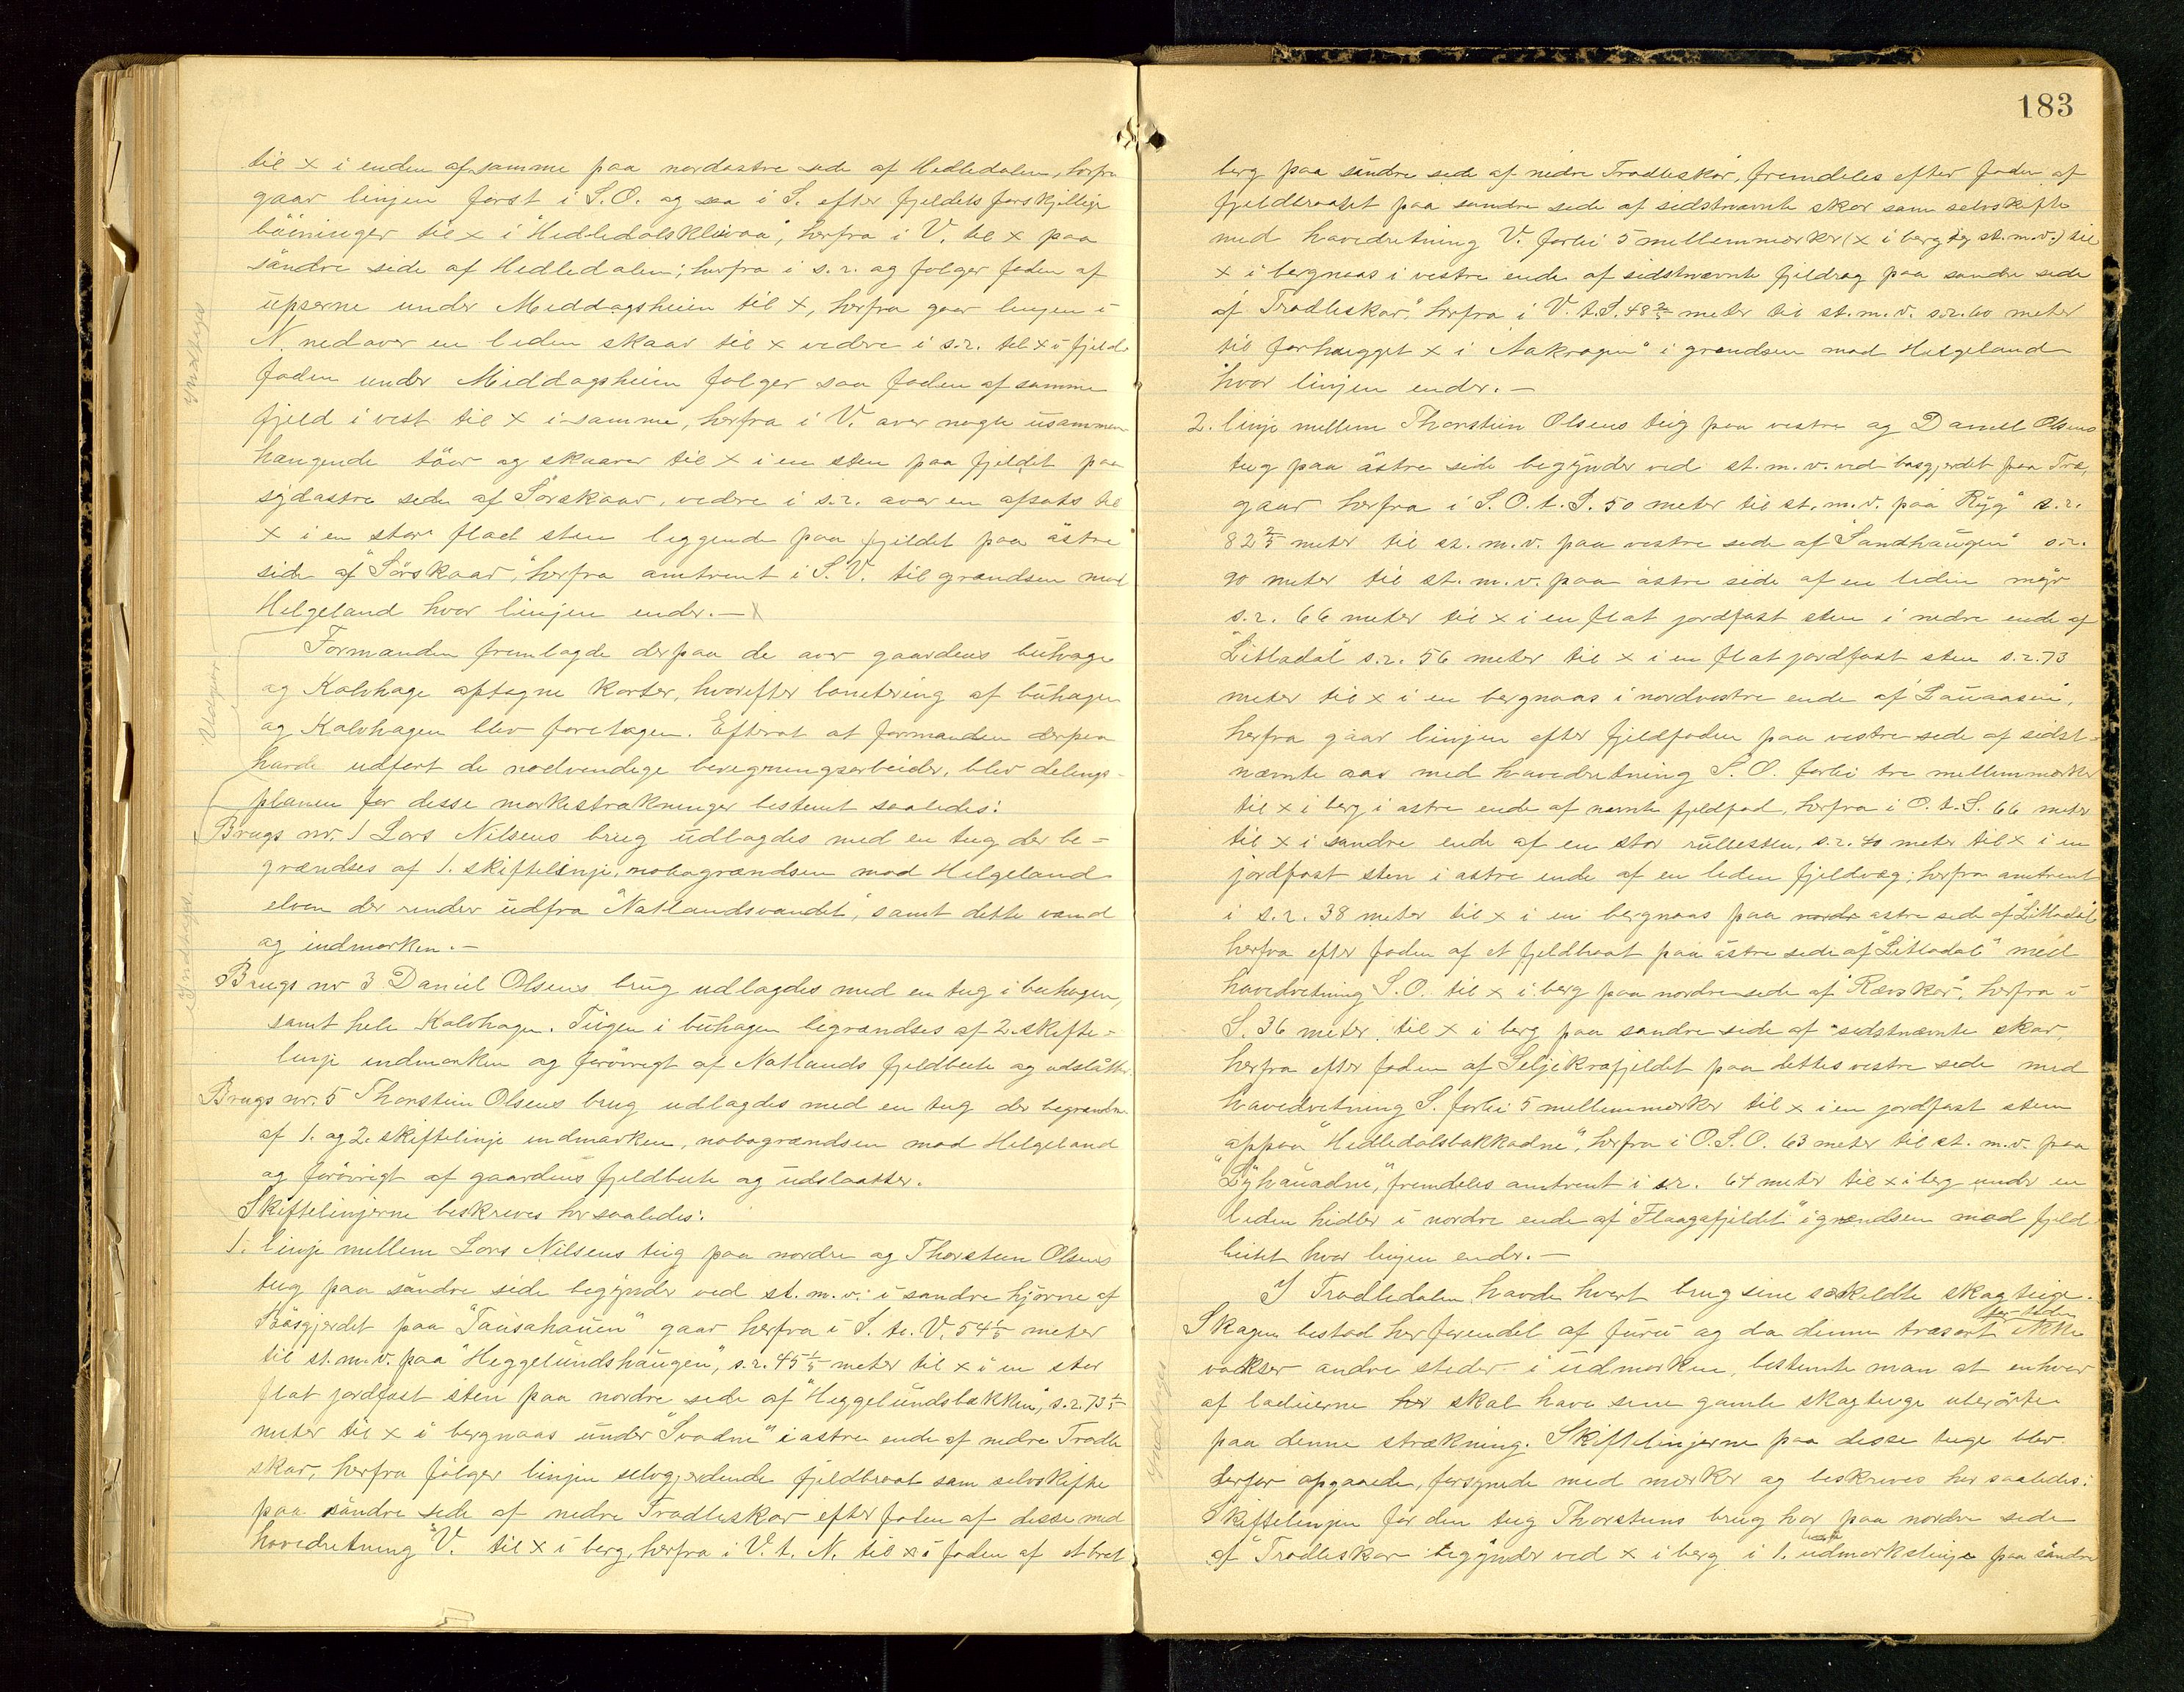 til x i enden af samme paa nordøstre side af Hedledalen, herfra
gaar linjen først i S.O. og saa i S. efter fjeldets forskjellige
böininger til x i "Hedledalsklivaa", herfra i V. til x paa
söndre side af Hedledalen; herfra i s.r. og følger foden af
upserne under Middagsheien til x, herfra gaar linjen i
N. nedover en liden skaar til x videre i s.r. til x i fjeld-
foden under Middagsheien følger saa foden af samme
fjeld i vest til x i samme, herfra i V. over nogle usammen-
hængende töer og skaarer til x i en sten paa fjeldet paa
sydøstre side af Sörskaar, videre i s.r. over en afsats til
x i en stor flad sten liggende paa fjeldet paa östre
side af "Sörskaar," herfra omtrent i S.V. til grændsen mod
Helgeland hvor linjen ender.—
Formanden fremlagde derpaa de over gaardens buhage
og Kalvhage optagne karter, hvorefter bonitering af buhagen
og Kalvhagen blev foretagen. Efterat at formanden derpaa
havde udført de nødvendige beregningsarbeider, blev delings-
planen for disse markestrækninger bestemt saaledes:
Brugs nr. 1 Lars Nilsens brug udlagdes med en teig der be-
grændses af 1. skiftelinje, nabogrændsen mod Helgeland
elven der render udfra "Natlandsvandet", samt dette vand
og indmarken.—
Brugs nr 3 Daniel Olsens brug udlagdes med en teig i buhagen,
samt hele Kalvhagen. Teigen i buhagen begrændses af 2. skifte-
linje indmarken og forövrigt af Natlands fjeldbeite og udslåtter.
Brugs nr. 5 Thorstein Olsens brug udlagdes med en teig der begrændses
af 1. og 2. skiftelinje indmarken, nabogrændsen mod Helgeland
og forövrigt af gaardens fjeldbeite og udslaatter.
Skiftelinjerne beskrives her saaledes:
1. linje mellem Lars Nilsens teig paa nordre og Thorstein Olsens
teig paa söndre side begynder ved st.m.v. i søndre hjörne af
Båsgjerdet paa "Tausahauen" gaar herfra i S. t. V. 54 1/5 meter
til st.m.v. paa "Heggelundshaugen", s.r. 45 1/5 meter til x i en stor
flat jordfast sten paa nordre side af "Heggelundsbækken", s.r. 73 1/5
meter til x i bergnaas under "Svadne" i østre ende af nedre Tradle
skar, herfra følger linjen selvgjerdende fjeldbraat som selvskifte
paa söndre side af nedre Tradleskar efter foden af disse med
hovedretning V. til x i berg, herfra i V. t. N. til x i foden af et bret
183
berg paa söndre side af nedre Tradleskar, fremdeles efter foden af
fjeldbraatet paa søndre side af sidstnævnte skar som selvskifte
med hovedretning V. forbi 5 mellemmærker (x i berg og st.m.v.) til
x i bergnaas i vestre ende af sidstnævnte fjeldrag paa søndre side
af "Tradleskar," herfra i V. t. S. 48 2/5 meter til st.m.v. s.r. 60 meter
til forhugget x i "Aakrogen" i grændsen mod Helgeland
hvor linjen ender.—
2. linje mellem Thorstein Olsens teig paa vestre og Daniel Olsens
teig paa östre side begynder ved st.m.v. ved båsgjerdet paa Træ,
gaar herfra i S.O. t. S. 50 meter til st.m.v. paa "Ryg" s.r.
82 2/5 meter til st.m.v. paa vestre side af "Sandhaugen" s.r.
90 meter til st.m.v. paa östre side af en liden myr
s.r. 66 meter til x i en flat jordfast sten i nedre ende af
"Litladal" s.r. 56 meter til x i en flat jordfast sten s.r. 73
meter til x i en bergnaas i nordvestre ende af "Lauaasen",
herfra gaar linjen efter fjeldfoden paa vestre side af sidst-
nævnte aas med hovedretning S.O. forbi tre mellemmærker
til x i berg i østre ende af nævnte fjeldfod, herfra i O. t. S. 66 meter
til x i søndre ende af en stor rullesten, s.r. 40 meter til x i en
jordfast sten i østre ende af en liden fjeldvæg, herfra omtrent
i s.r. 38 meter til x i en bergnaas paa nordr østre side af "Litladal"
herfra efter foden af et fjeldbraat paa östre side af "Litladal" med
hovedretning S.O. til x i berg paa nordre side af "Rævskar", herfra i
S. 36 meter til x i berg paa søndre side af sidstnævnte skar,
herfra efter foden af Seljekrafjeldet paa dettes vestre side med
hovedretning S. forbi 5 mellemmærker til x i en jordfast sten
oppaa "Hedledalsbakkadne", herfra i O.S.O. 63 meter til st.m.v. paa
"Lyhauadne", fremdeles omtrent i s.r. 64 meter til x i berg under en
liden hidler i nordre ende af "Flaagafjeldet" i grændsen mod fjeld-
beitet hvor linjen ender.—
I Tradledalen havde hvert brug sine særskildte skogteige.
for tiden
Skogen bestod her forendel af furu og da denne træsort ikke
vokser andre steder i udmarken, bestemte man at enhver
af lodeierne her skal have sine gamle skogteige uberörte
paa denne strækning. Skiftelinjerne paa disse teige blev
derfor opgaaede, forsynede med mærker og beskrives her saaledes:
Skiftelinjen for den teig Thorsteins brug har paa nordre side
af Tradleskar begynder ved x i berg i 1. udmarkslinje paa söndre
Udskifter
Indtages.